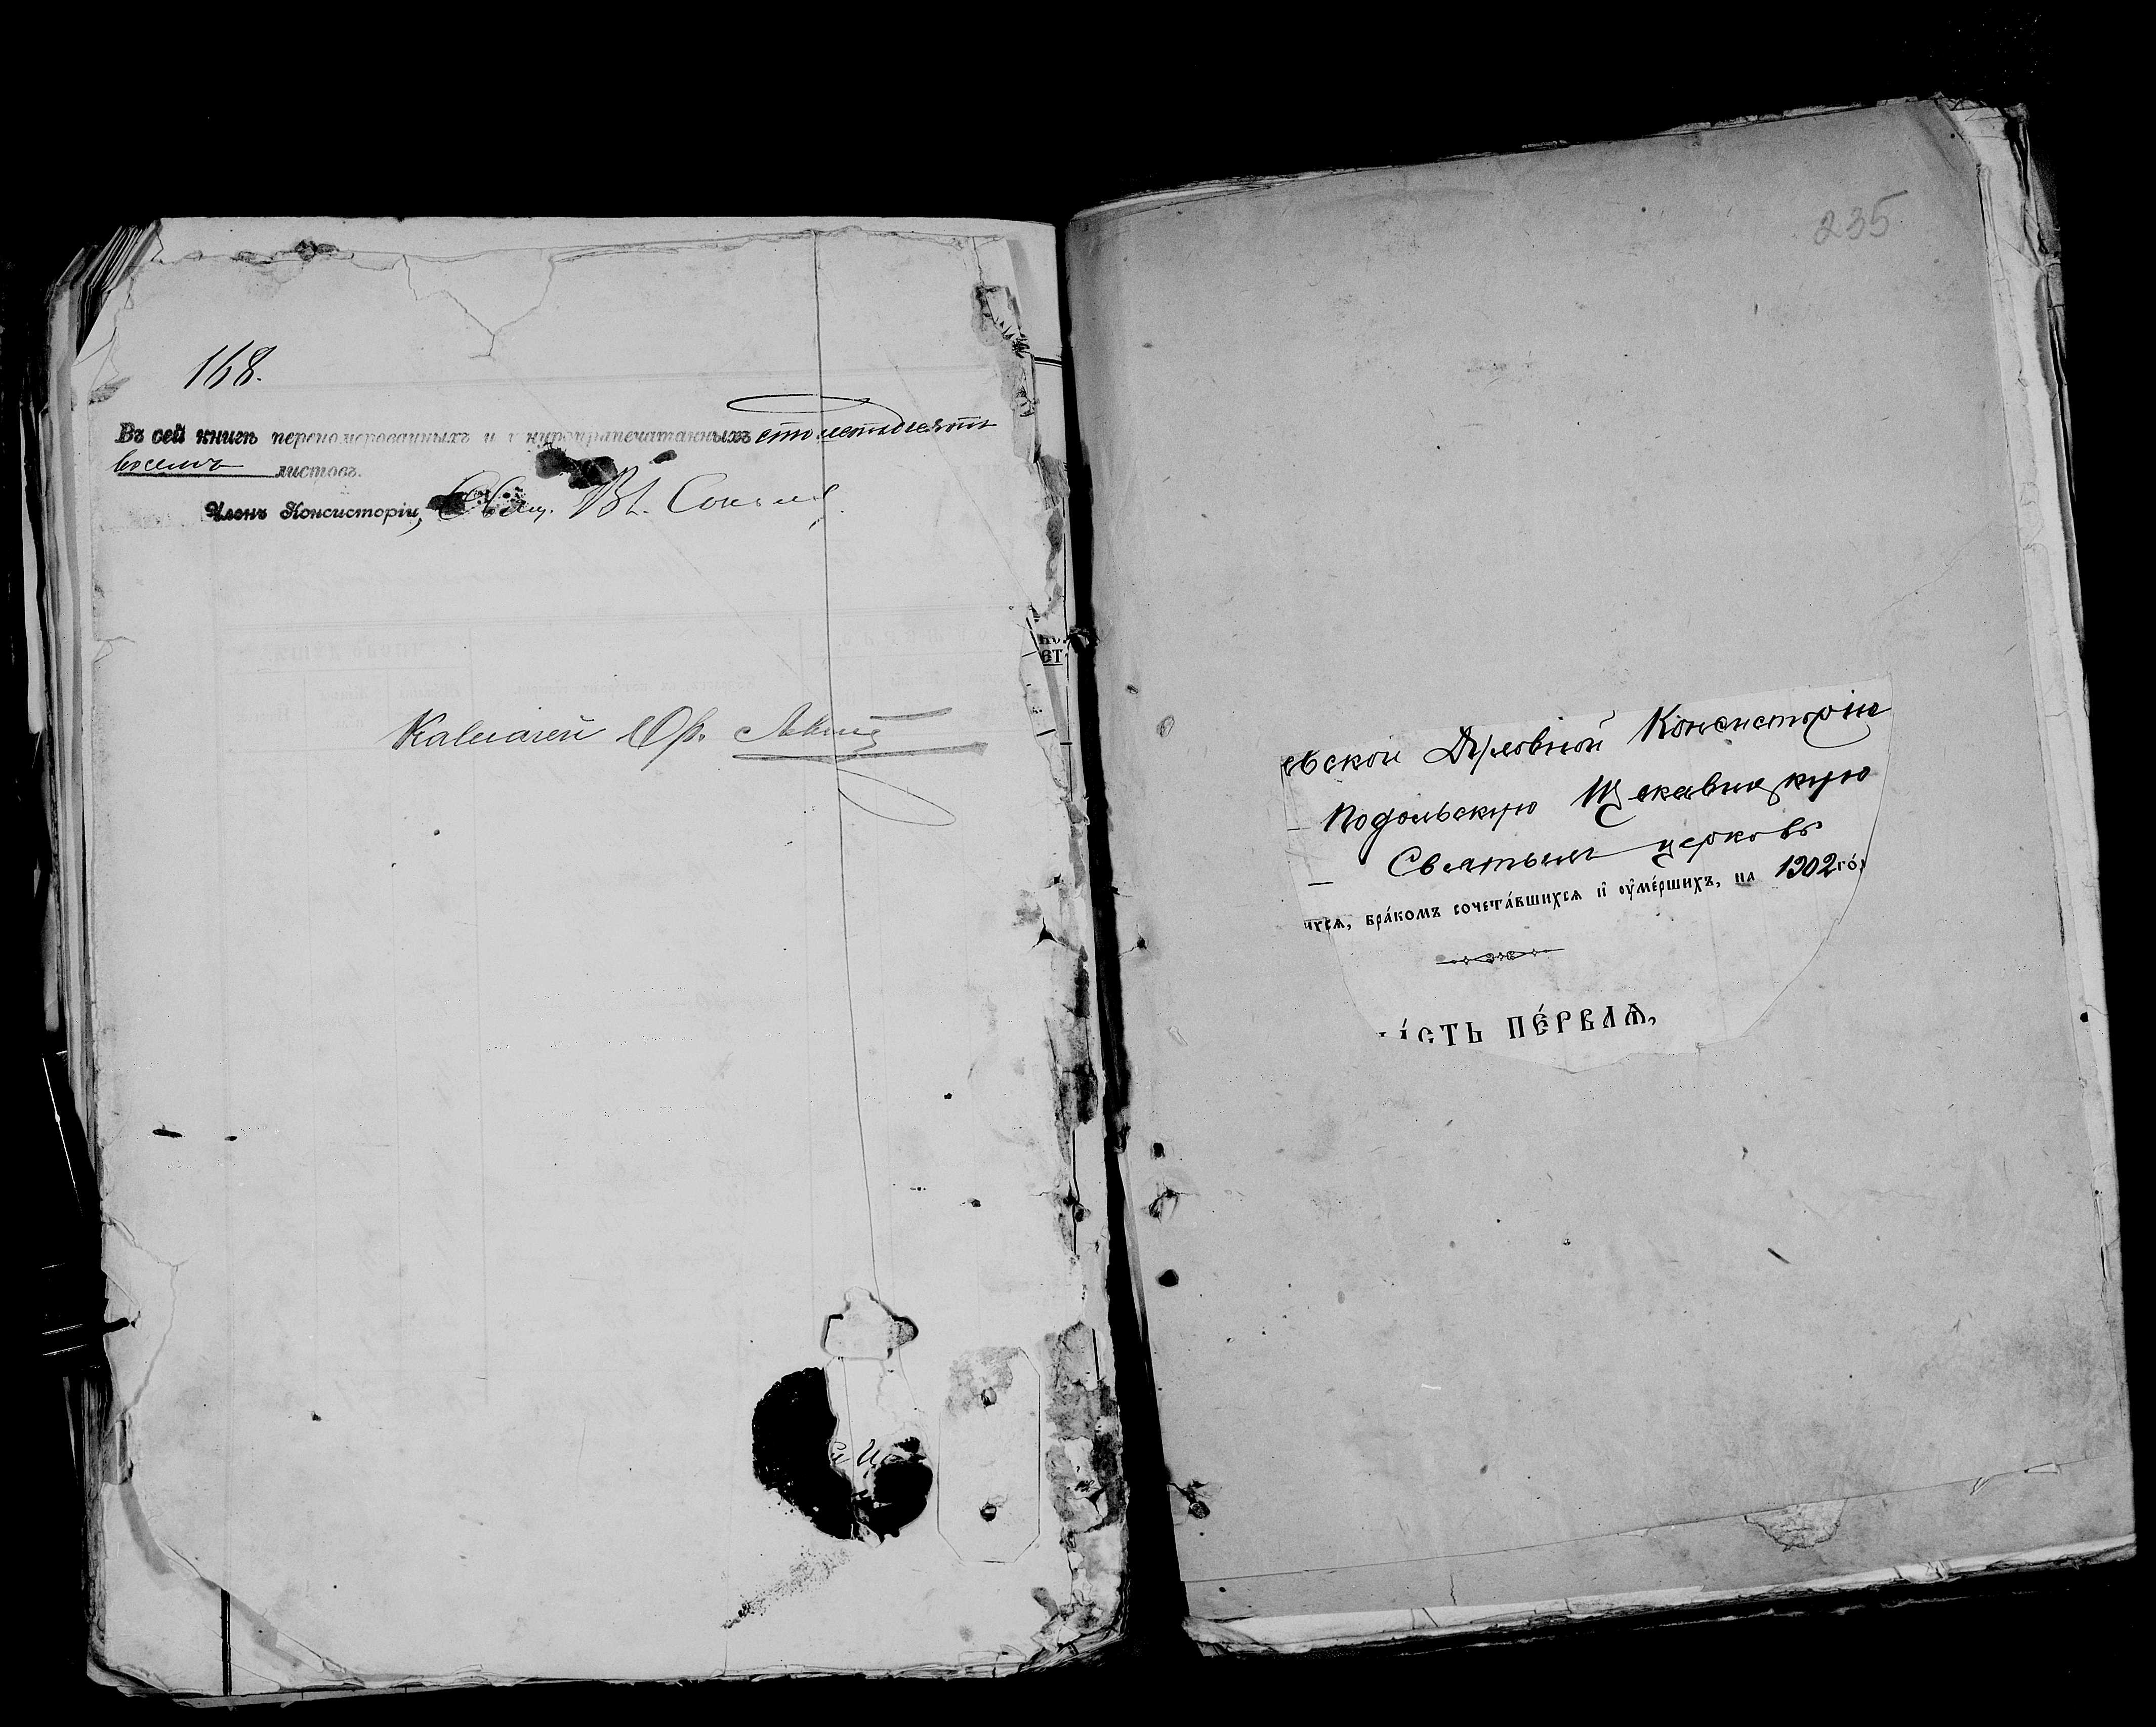 168.
Въ сей книгѣ перенумерованныхъ и шнуроприпечатанныхъ сто шестьдесятъ
восемь листовъ.
Членъ Консисторіи, Свящ. Вл.
Казначей
235
евской Духовной Консисторіи
Подольскую Щекавицкую
Святымъ церковь
ихсѧ, бра́комъ сочета́вшихсѧ и҆ ᲂу҆ме́ршихъ, на 1902 го́д
а́сть пе́рваѧ,